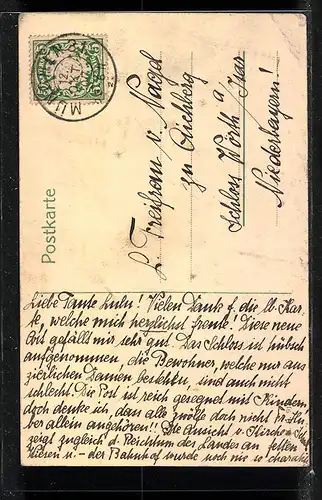 Postkarte
L. Freifrau v. Nagel
zu Aichberg
Schloss Wörth a/Isar
Niederbayern!
Liebe Tante Lulu! Vielen Dank f. die lb. Kar-
te, welche mich herzlichst freute! Diese neue
gefällt mir sehr gut. Das Schloss ist hübsch
aufgenommen die Bewohner, welche nur aus
zierlichen Damen bestehen, sind auch nicht
schlecht. Die ist reich geregnet mit Kindern,
doch denke ich, dass alle zwölf doch nicht
ber allein angehören!! Die Ansicht v. Kirch
zeigt zugleich d. Reichtum des Landes an fetten
u. – der Bahnhof wurde noch nie so